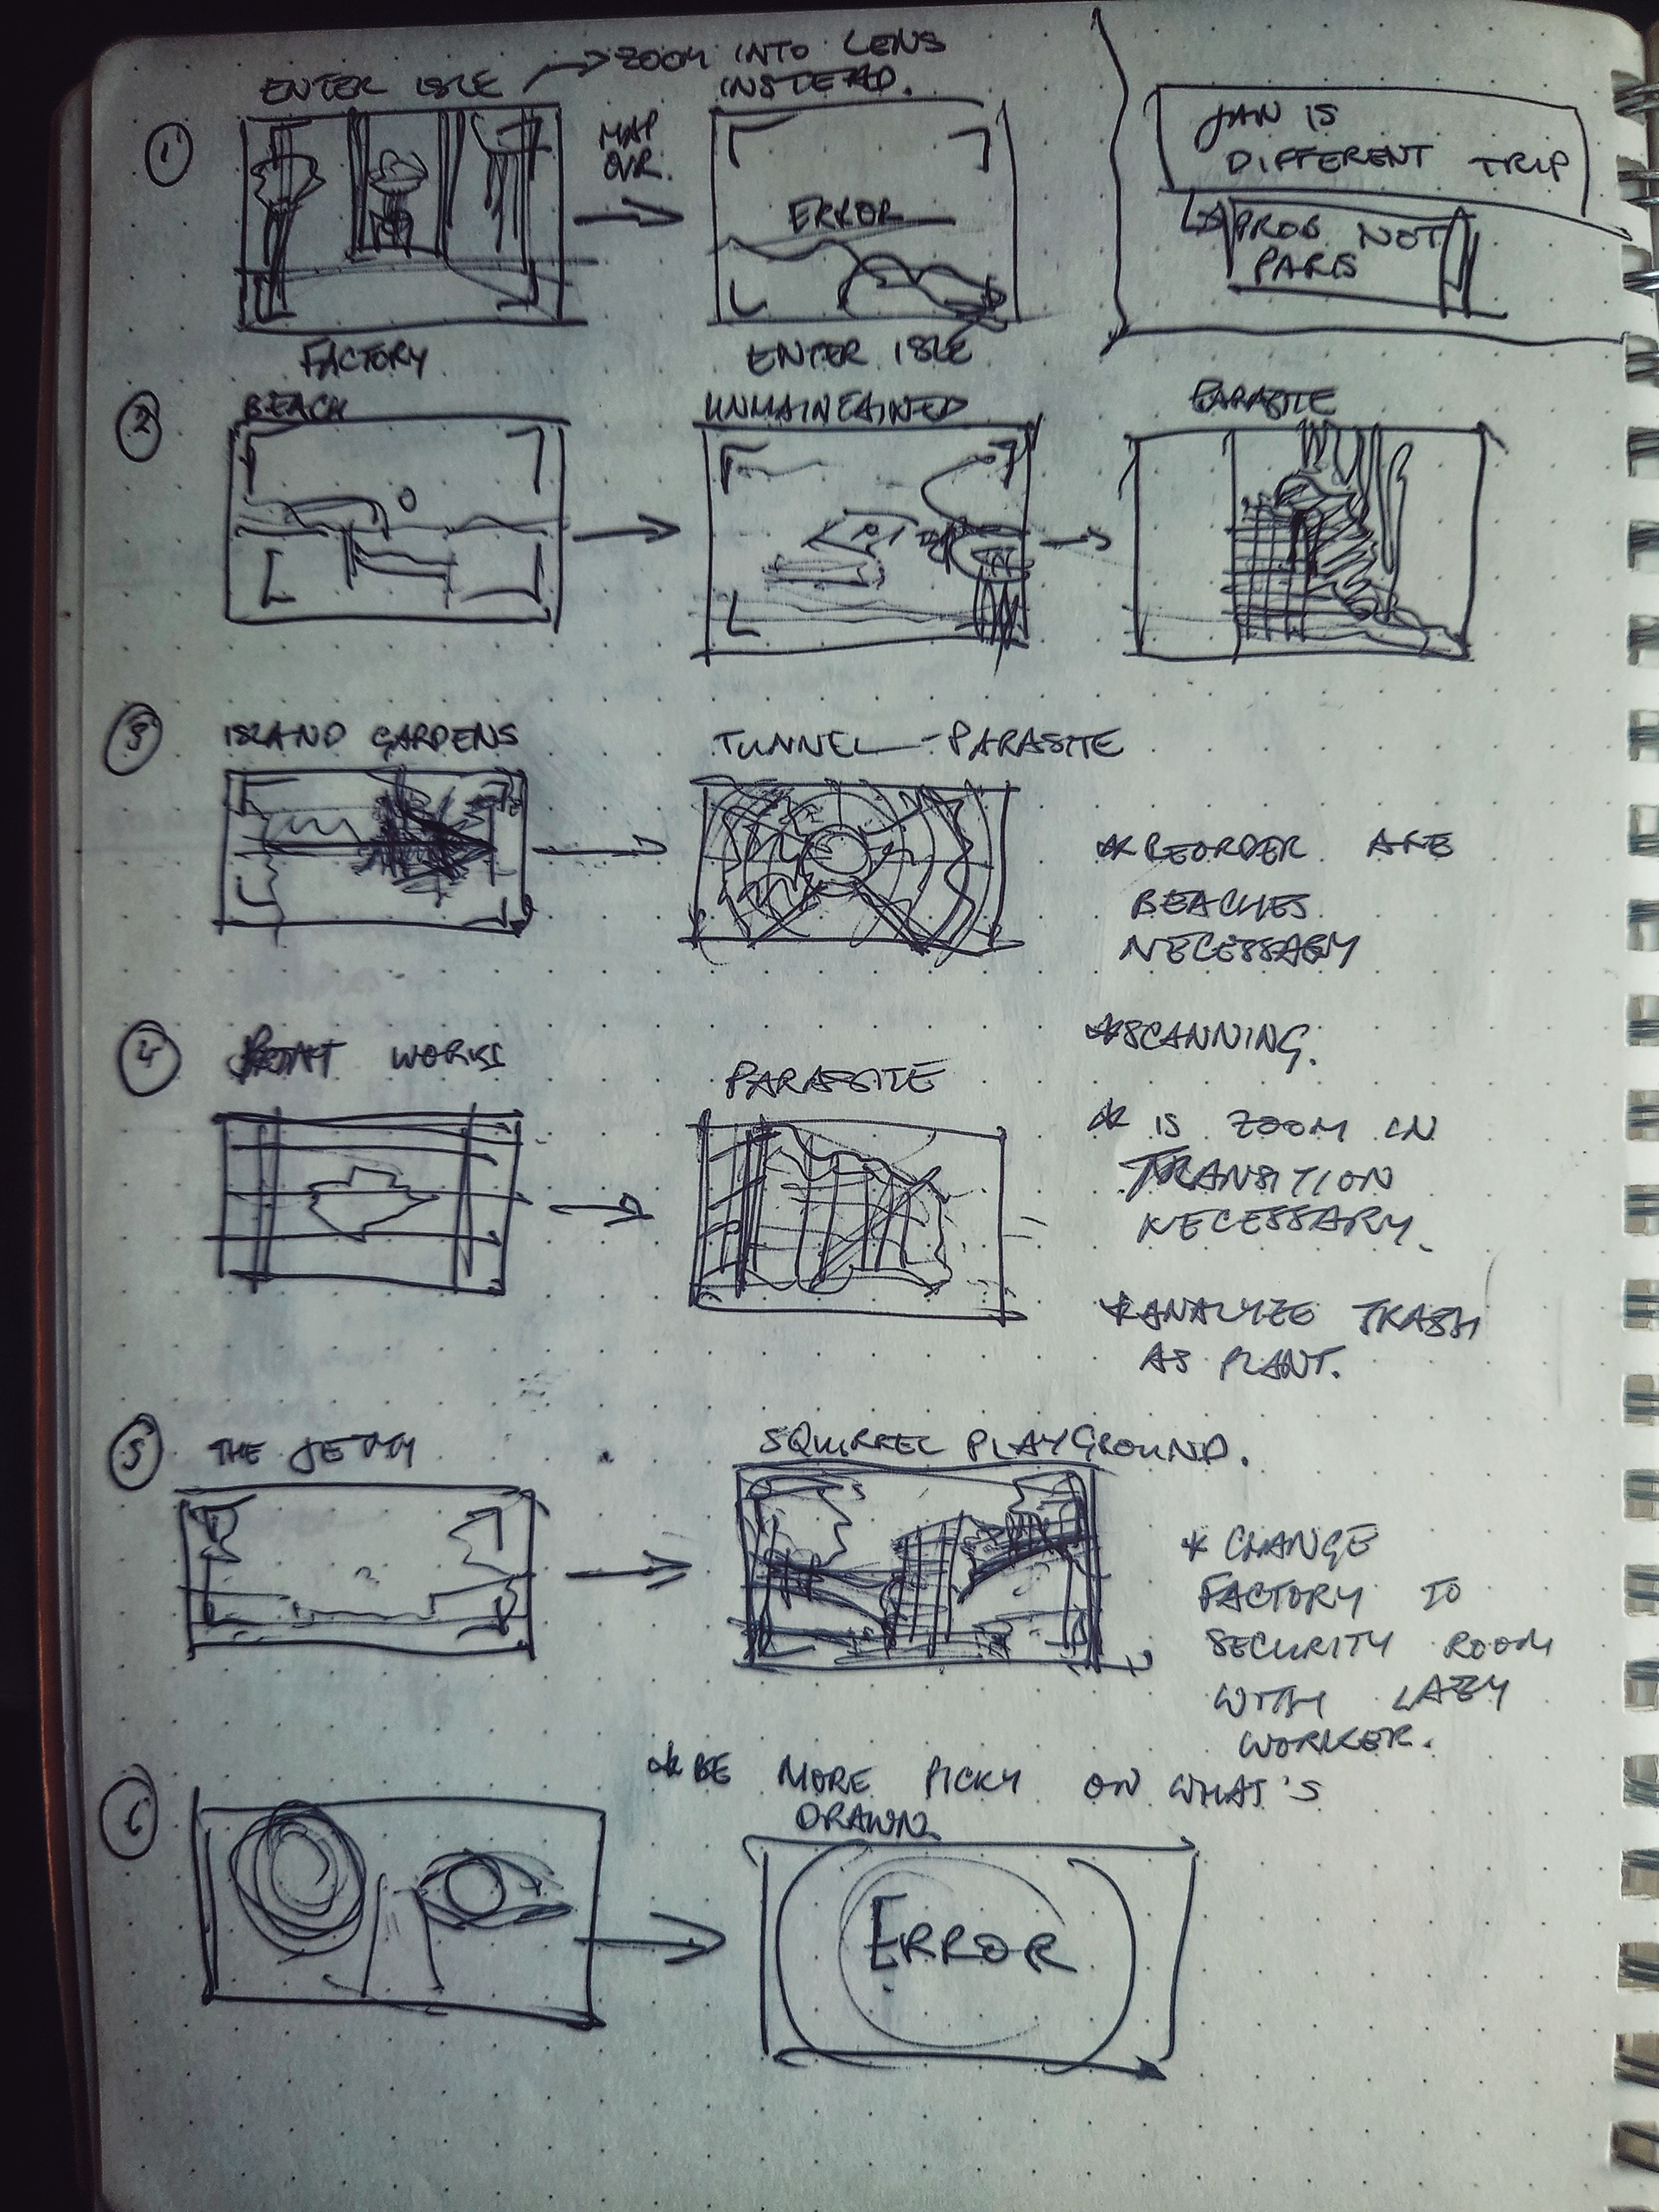 ENTER ISLE → ZOOM INTO LENS
INSTEAD.
①
MAP
OVR.
ERROR
JAN IS
DIFFERENT TRIP
PROB NOT
PARIS
FACTORY
ENTER ISLE
②
BEACH
UNMAINTAINED
PARASITE
③
ISLAND GARDENS
TUNNEL - PARASITE
* REORDER ARE
BEACHES
NECESSARY
④
WORKS
PARASITE
* SCANNING.
* IS ZOOM IN
TRANSITION
NECESSARY.
* ANALYZE TRASH
AS PLANT.
⑤
THE JETTY
SQUIRREL PLAYGROUND.
* CHANGE
FACTORY TO
SECURITY ROOM
WITH LAZY
WORKER.
⑥
* BE MORE PICKY ON WHAT'S
DRAWN.
ERROR